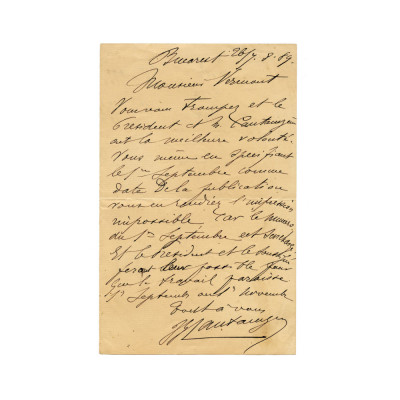 Bucarest 26/7. 8. 89.
Monsieur Vermont
Vous vous trompez et le
President et M. Cantacuzin
ont la meilleure volonté.
Vous même en spécifiant
le 1er Septembre comme
date de la publication
vous en rendiez l'impression
impossible car le numero
du 1er Septembre est
Et le President et le
feront leur possible pour
que le travail paraisse
1r Septembre Novembre
Tout à vous